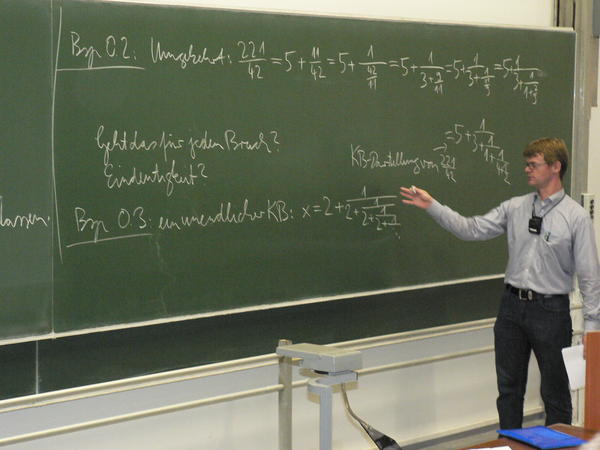 lassen.
Bsp 0.2: Umgekehrt: 221/42 = 5 + 11/42 = 5 + 1/(42/11) = 5 + 1/(3 + 9/11) = 5 + 1/(3 + 1/(11/9)) = 5 + 1/(3 + 1/(1 + 2/9))
= 5 + 1/(3 + 1/(1 + 1/(4 + 1/2)))
Geht das für jeden Bruch?
Eindeutigkeit?
KB-Darstellung von 221/42
Bsp 0.3: ein unendlicher KB: x = 2 + 1/(2 + 1/(2 + 1/(2 + 1/⋱)))